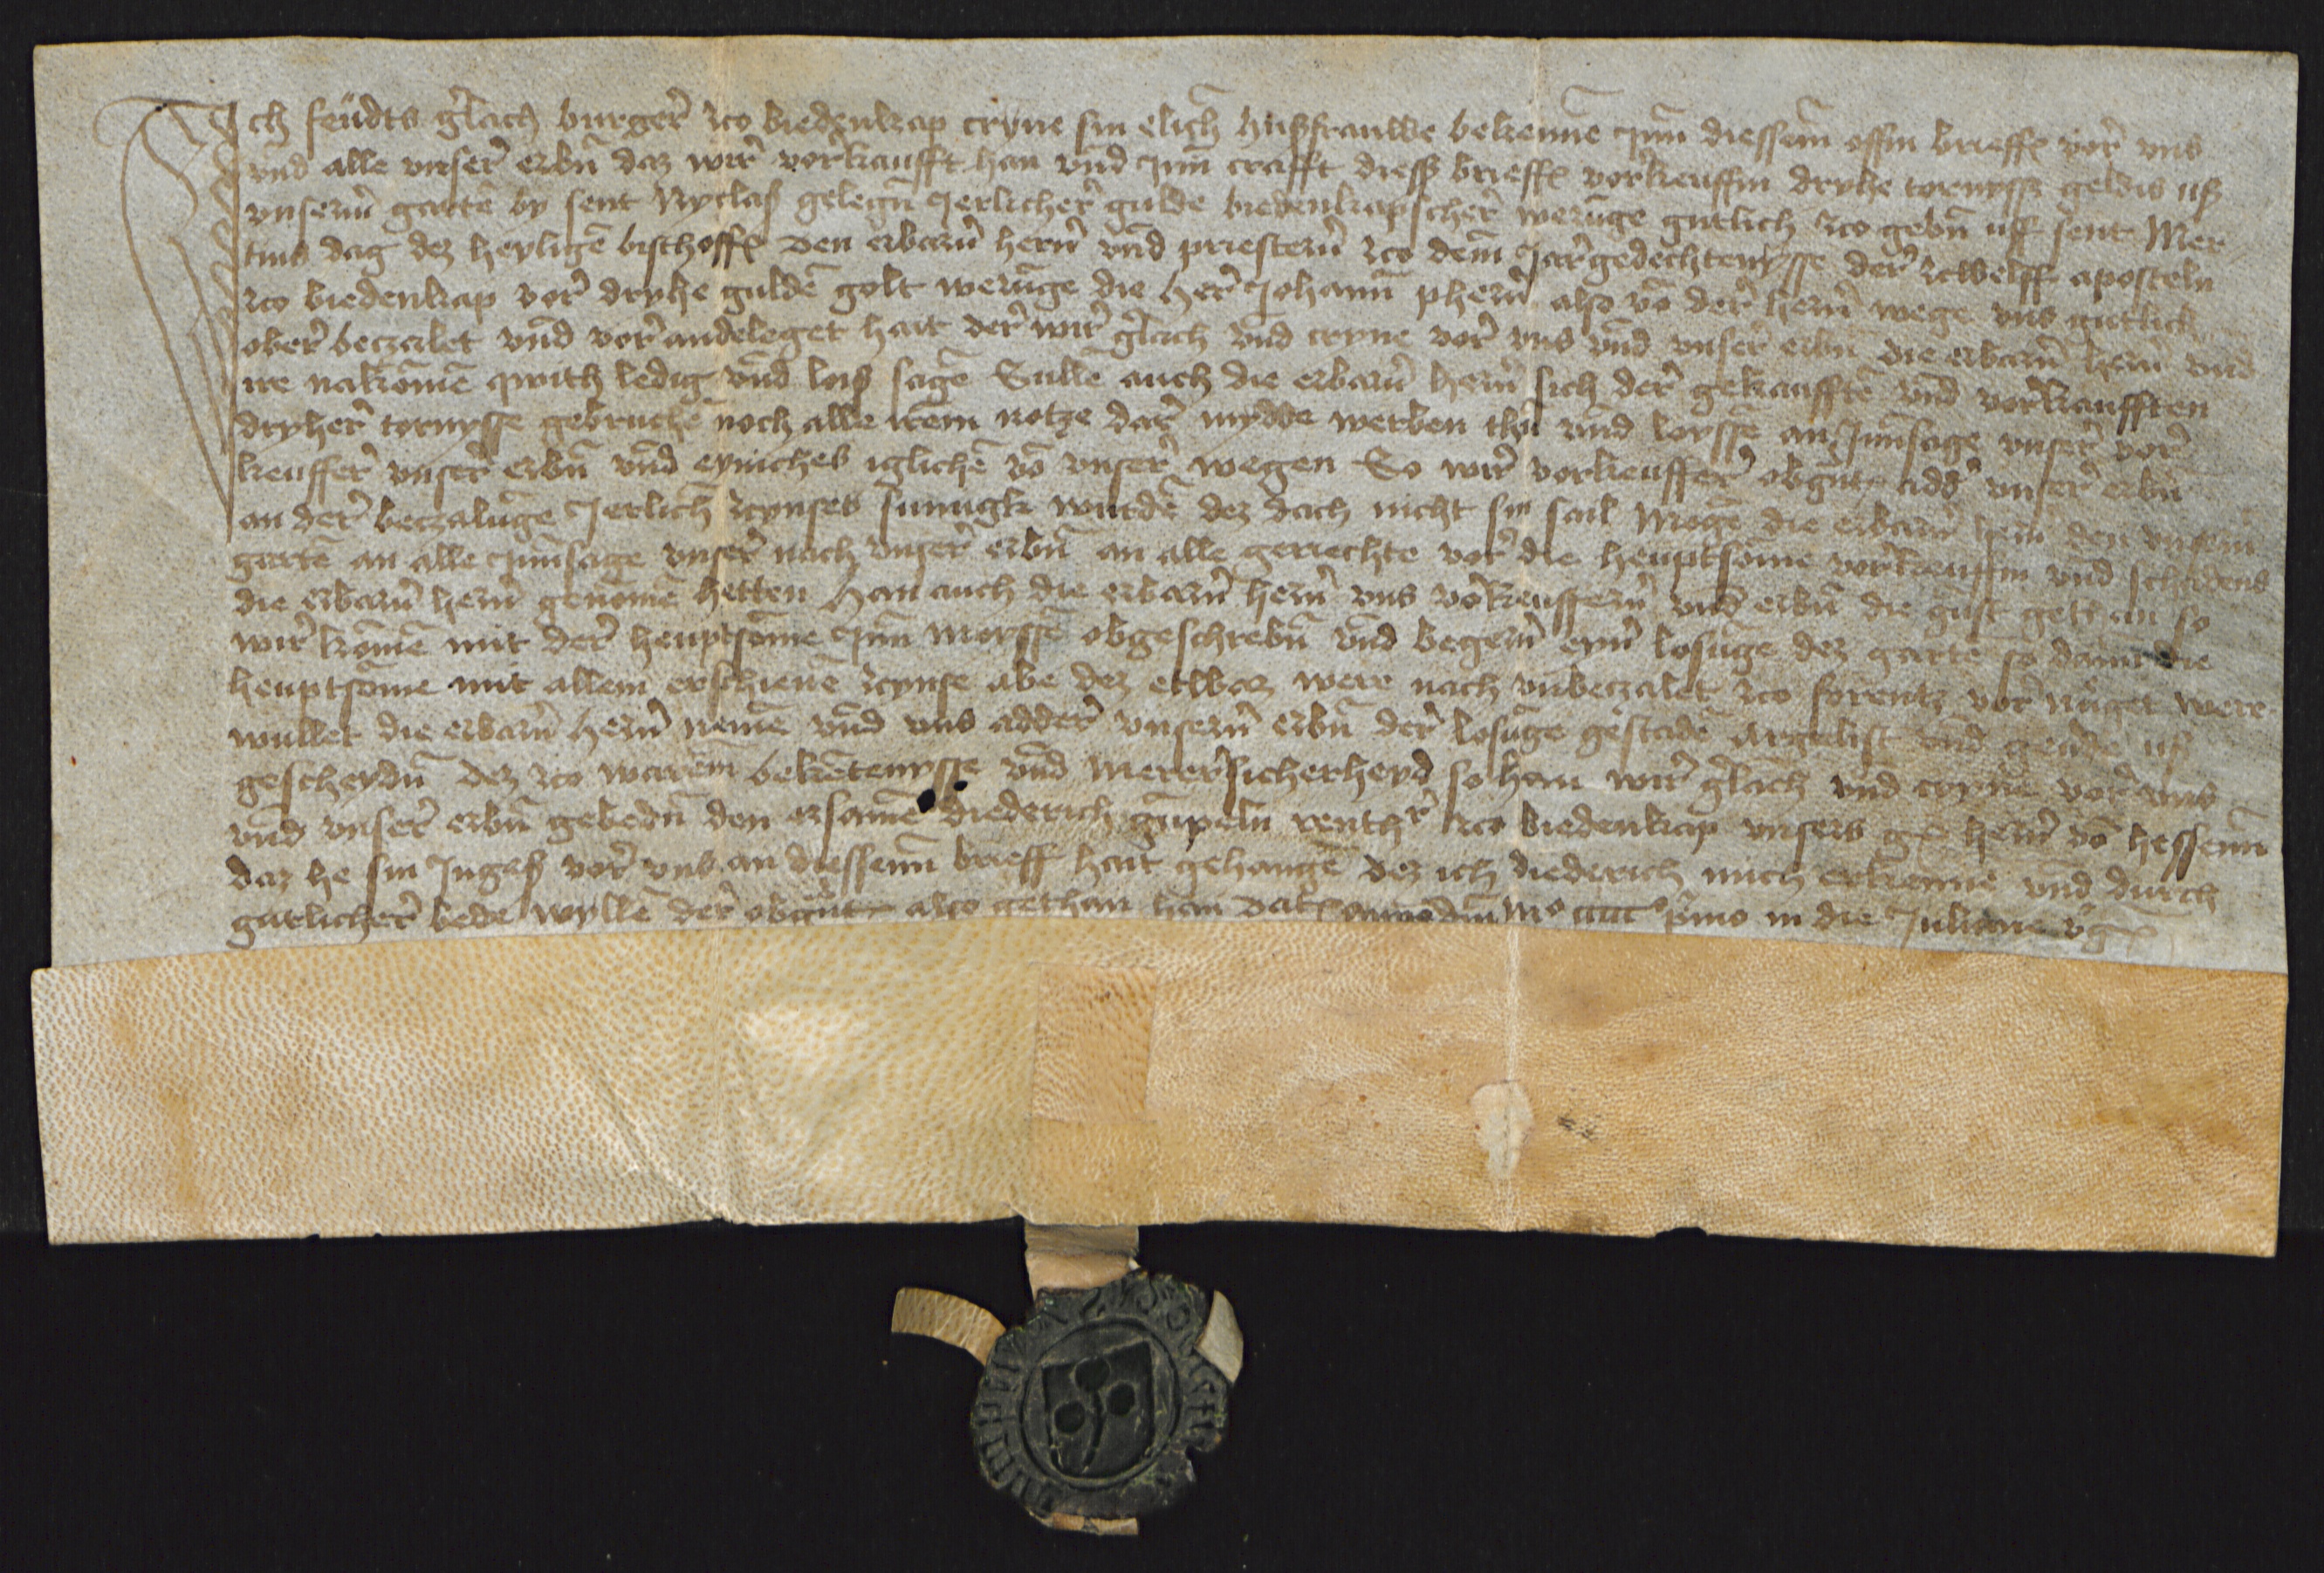 Ich feudts gerlach burger zco biedenkap cryne sin elich hußfrauwe bekenne Jnn diessem offin brieffe vor uns
vnd alle vnser erbn daz wir vorkaufft han vnd Jnn crafft dieß brieffs vorkeuffin dryhe tornysse geldis uß
vnserm garten by sent Nyclaß gelegn Jerlicher gulde biedenkapscher werunge gutlich zco gebn uff sent Mer
tins dag dez heyligen bischoffs den erbarn hern vnd priestern zco dem Jargedechtenysse der zcwelff aposteln
zco biedenkap vor dryhe gulden golt werunge die her Johann phern also von der hern wege vns gutlich
ober beczalet vnd vor andeleget hait der wir gerlach vnd cryne vor vns vnd vnser erbn die erbarn hern vnd
ire nakomen qwith ledig vnd loiß sagen Sullen auch die erbarn hern sich der gekaufften vnd vorkaufften
dryher tornysse gebruchen noch alle irem notze dar mydde werben thun vnd loyssen an Jnnsage vnser vor
keuffer vnser erbn vnd eyniches iglichen von vnser wegen So wir vorkeuffer obgnt adder vnser erbn
an der beczalunge Jerlich zcynses sumigk wurden dez doch nicht sin sail Mogen die erbarn hern den vnsern
garten an alle Jnnsage vnser nach vnser erbn an alle gerechte vor die heuptsomme vorkeuffin vnd schadens
die erbarn hern genomen hetten Han auch die erbarn hern vns vorkeuffern vnd erbn die gunst gethan so
wir komen mit der heuptsomme Jnn Morssen obgeschrebn vnd begern eyn losunge dez garten so dann die
heuptsomme mit allem erschienen zcynse abe dez etwaz were nach vnbeczalet zco forentz vor nuget were
wullet die erbarn hern nemen vnd vns adder vnsern erbn der losunge gestaden Argelist vnd geuerde uß
gescheydn dez zco warem bekentenysse vnd merer sicherheyd so han wir gerlach vnd cryne vor vns
vnd vnser erbn gebedn den ersamen diederich gumpeln renther zco biedenkap vnsers g hern von hessenn
daz he sin Jngeß vor vns an diessenn brieff hait gehangen dez ich diederich mich erkenne vnd durch
gutlicher bede wyllen der obgnt also gethan han dat anno dni Mo primo in die Juliane vg